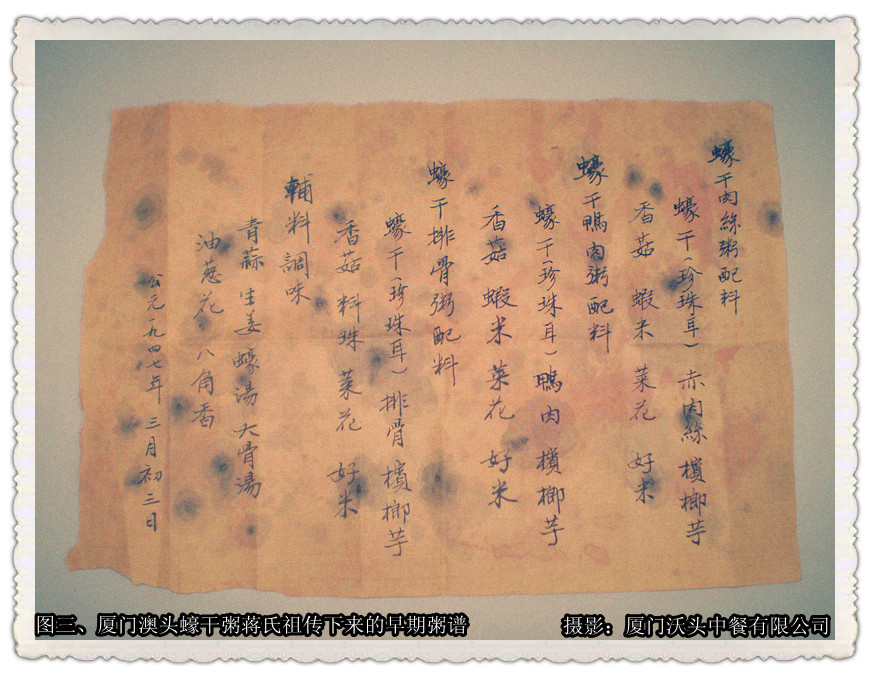 蠔干肉絲粥配料
蠔干(珍珠耳)赤肉絲 檳榔芋
香菇 蝦米 菜花 好米
蠔干鴨肉粥配料
蠔干(珍珠耳)鴨肉 檳榔芋
香菇 蝦米 菜花 好米
蠔干排骨粥配料
蠔干(珍珠耳)排骨 檳榔芋
香菇 料珠 菜花 好米
輔料調味
青蒜 生姜 蠔湯 大骨湯
油葱花 八角香
公元一九四七年 三月初三日
图三、厦门澳头蠔干粥蒋氏祖传下来的早期粥谱
摄影：厦门沃头中餐有限公司